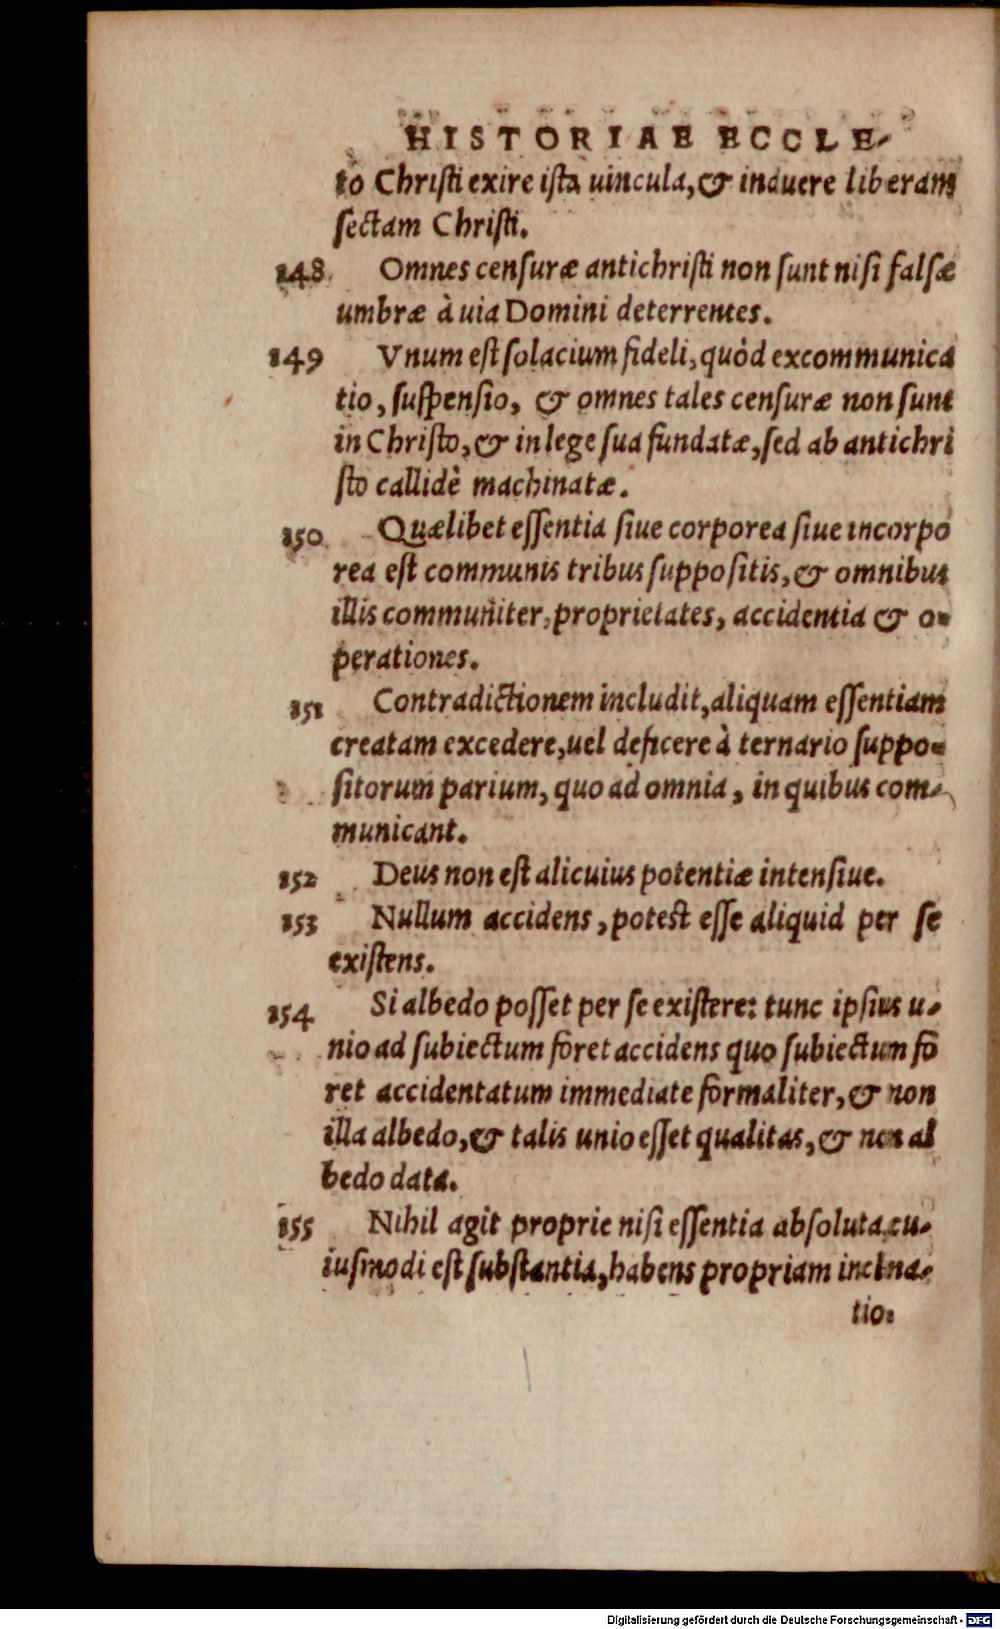 HISTORIAE ECCLE-
to Christi exire ista uincula, & induere liberam
sectam Christi.
148 Omnes censuræ antichristi non sunt nisi falsæ
umbræ à uia Domini deterrentes.
149 Vnum est solacium fideli, quòd excommunica
tio, suspensio, & omnes tales censuræ non sunt
in Christo, & in lege sua fundatæ, sed ab antichri
sto callidè machinatæ.
150 Quælibet essentia siue corporea siue incorpo
rea est communis tribus suppositis, & omnibus
illis communiter, proprietates, accidentia & o-
perationes.
151 Contradictionem includit, aliquam essentiam
creatam excedere, uel deficere à ternario suppo-
sitorum parium, quo ad omnia, in quibus com-
municant.
152 Deus non est alicuius potentiæ intensiue.
153 Nullum accidens, potest esse aliquid per se
existens.
154 Si albedo posset per se existere: tunc ipsius u-
nio ad subiectum foret accidens quo subiectum fo
ret accidentatum immediate formaliter, & non
illa albedo, & talis unio esset qualitas, & non al
bedo data.
155 Nihil agit proprie nisi essentia absoluta, cu-
iusmodi est substantia, habens propriam inclina-
tio-
Digitalisierung gefördert durch die Deutsche Forschungsgemeinschaft - DFG